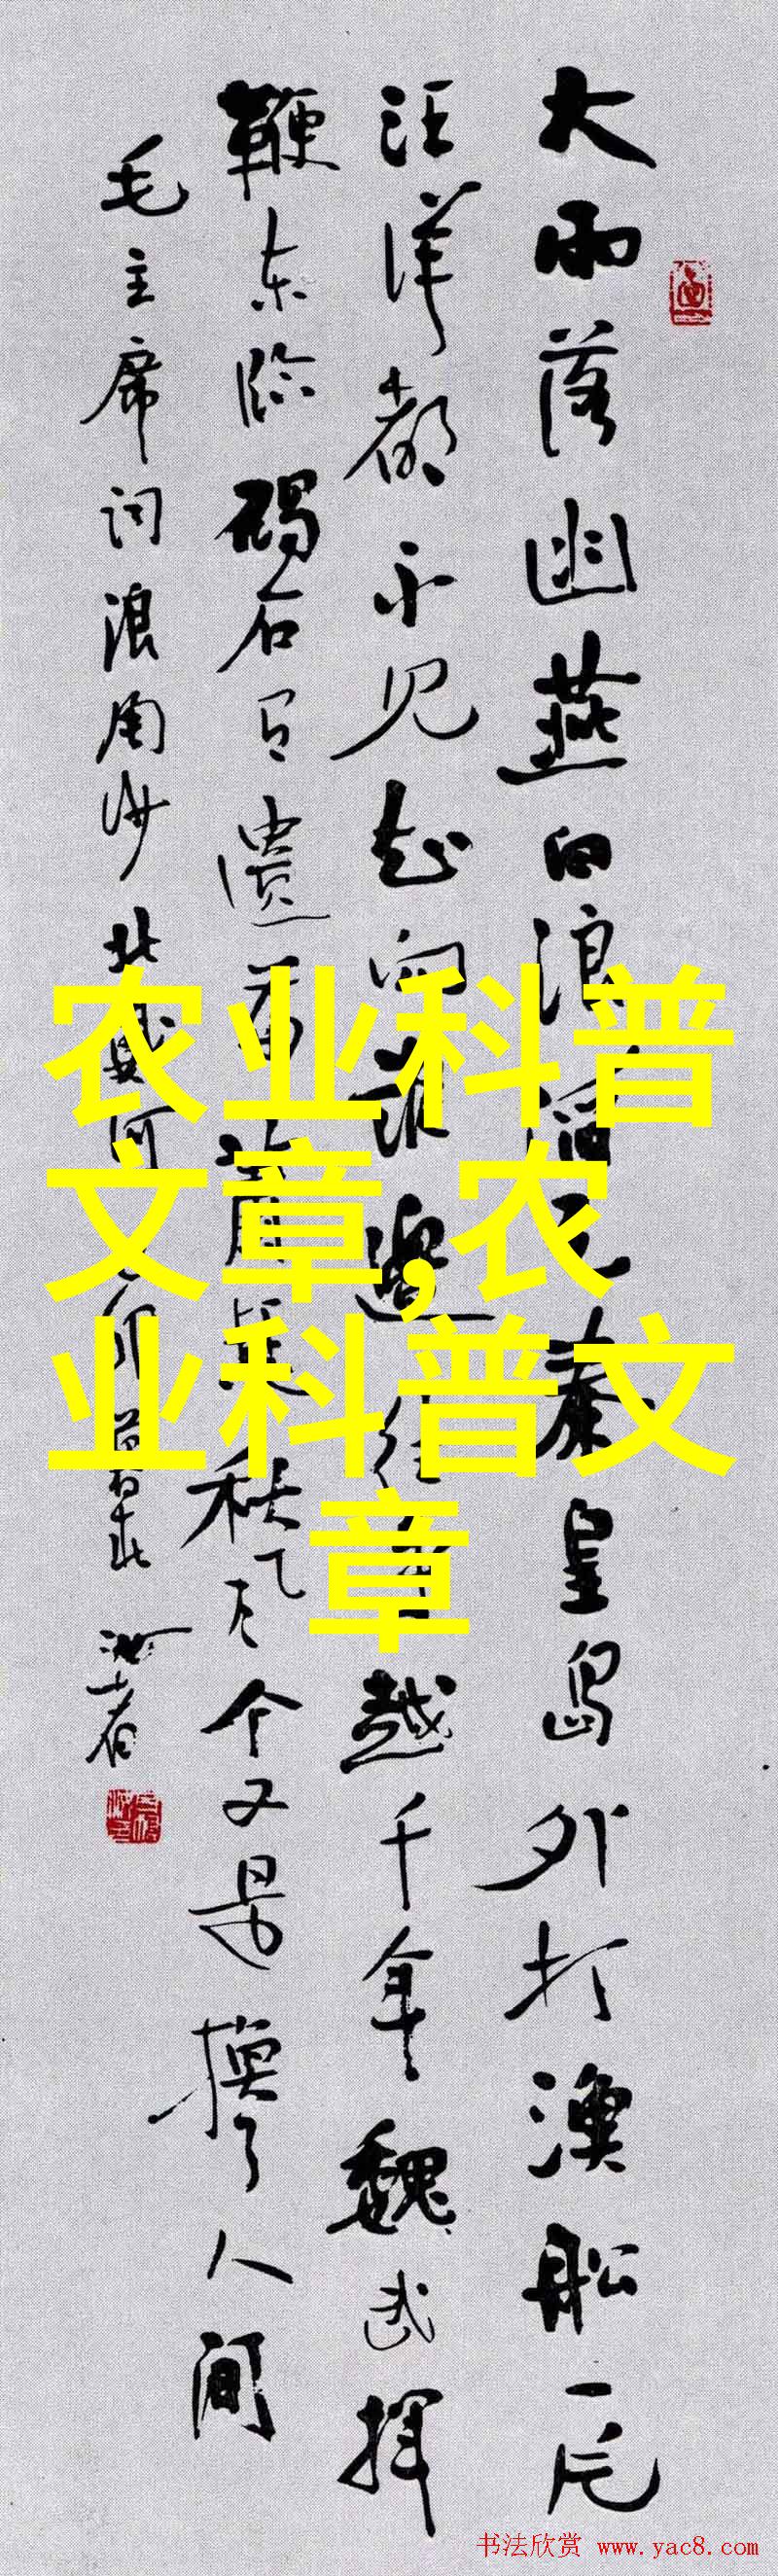 大雨落幽燕白浪滔天秦皇岛外打漁船一片
汪洋都不见知向谁邊往事越千年魏武揮
鞭东临碣石有遗篇萧瑟秋风今又是换了人间
毛主席词浪淘沙北戴河
农业科普
文章,农
业科普文
章
书法欣赏 www.yac8.com